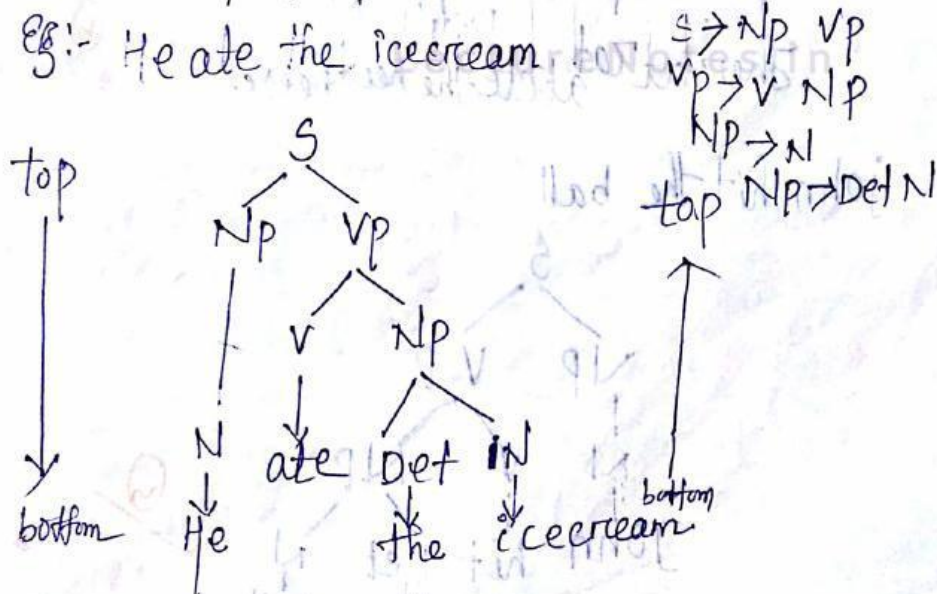 Eg:- He ate the icecream
S → Np Vp
Vp → V NP
NP → N
Np → Det N
top
S
top
Np Vp
V Np
N ate Det N
bottom
He the icecream
bottom